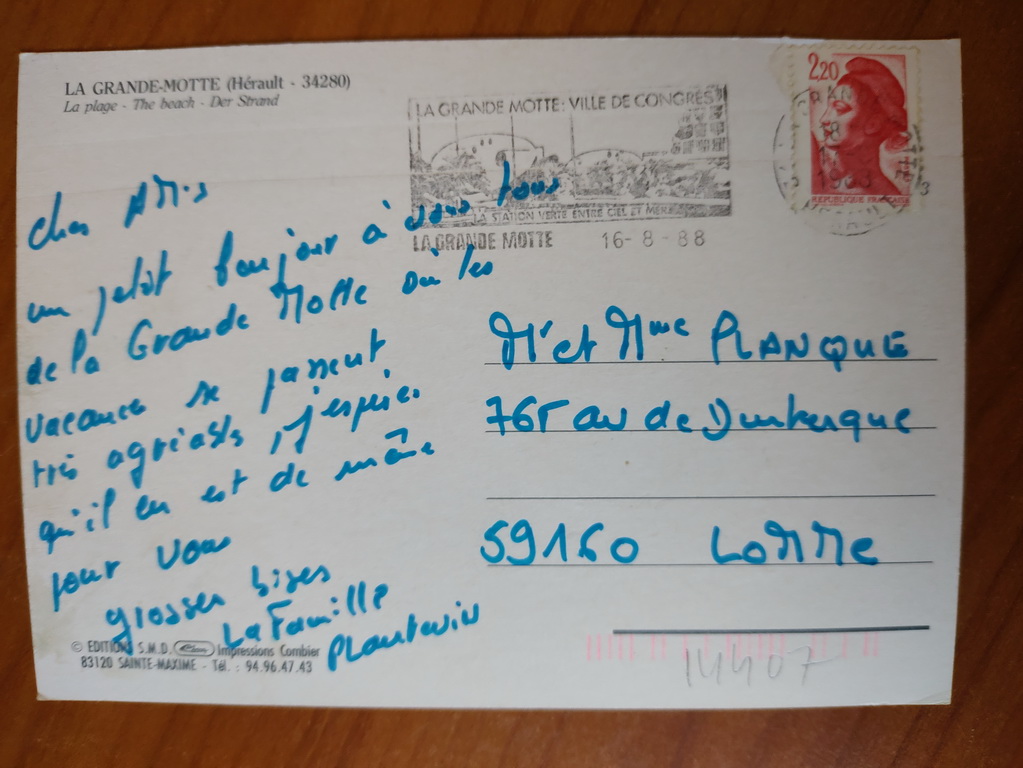 LA GRANDE-MOTTE (Hérault - 34280)
La plage - The beach - Der Strand
LA GRANDE MOTTE: VILLE DE CONGRES
LA STATION VERTE ENTRE CIEL ET MER
LA GRANDE MOTTE 16-8-88
2,20
REPUBLIQUE FRANÇAISE
18
1988
Chers Amis
un petit bonjour à vous tous
de la Grande Motte où les
vacances se passent
très agréable, j'espère
qu'il en est de même
pour vous
grosses bises
La Famille
Plantevin
Mr et Mme PLANQUE
765 av de Dunkerque
59160 LOMME
© EDITIONS S.M.D. Impressions Combier
83120 SAINTE-MAXIME - Tél. : 94.96.47.43
14407